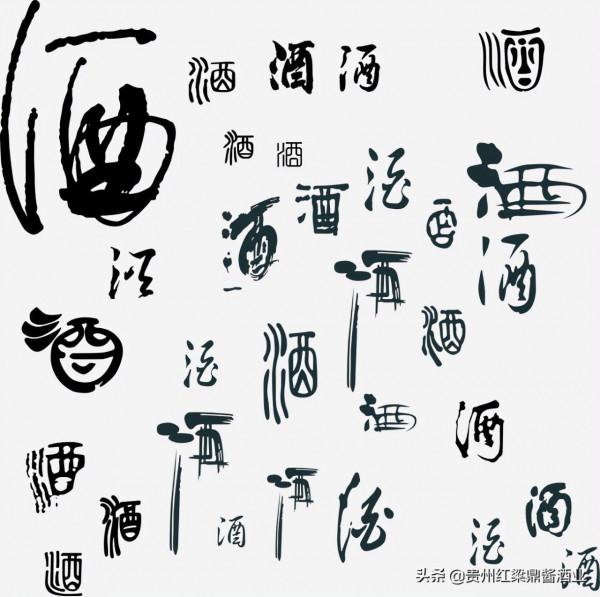 酒
酒 酒 酒 酒
酒 酒
酒 酒 酒 酒
酒 酒 酒
酒 酒 酒
酒 酒
酒 酒 酒
酒 酒 酒
酒 酒 酒 酒
酒 酒
头条 @贵州红粱鼎酱酒业